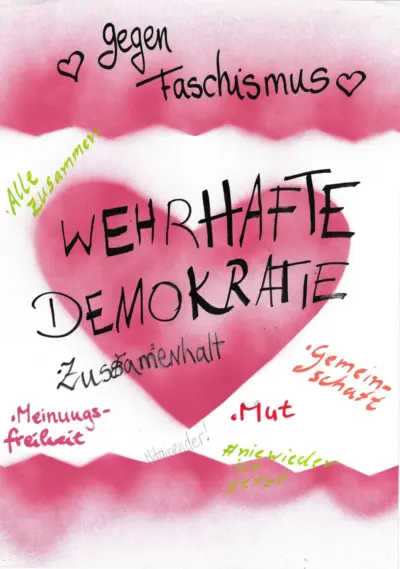 gegen
Faschismus
·Alle
zusammen
WEHRHAFTE
DEMOKRATIE
·Zusammenhalt
·Gemein-
schaft
·Meinungs-
freiheit
·Mut
Miteinander!
#niewieder
ist
jetzt